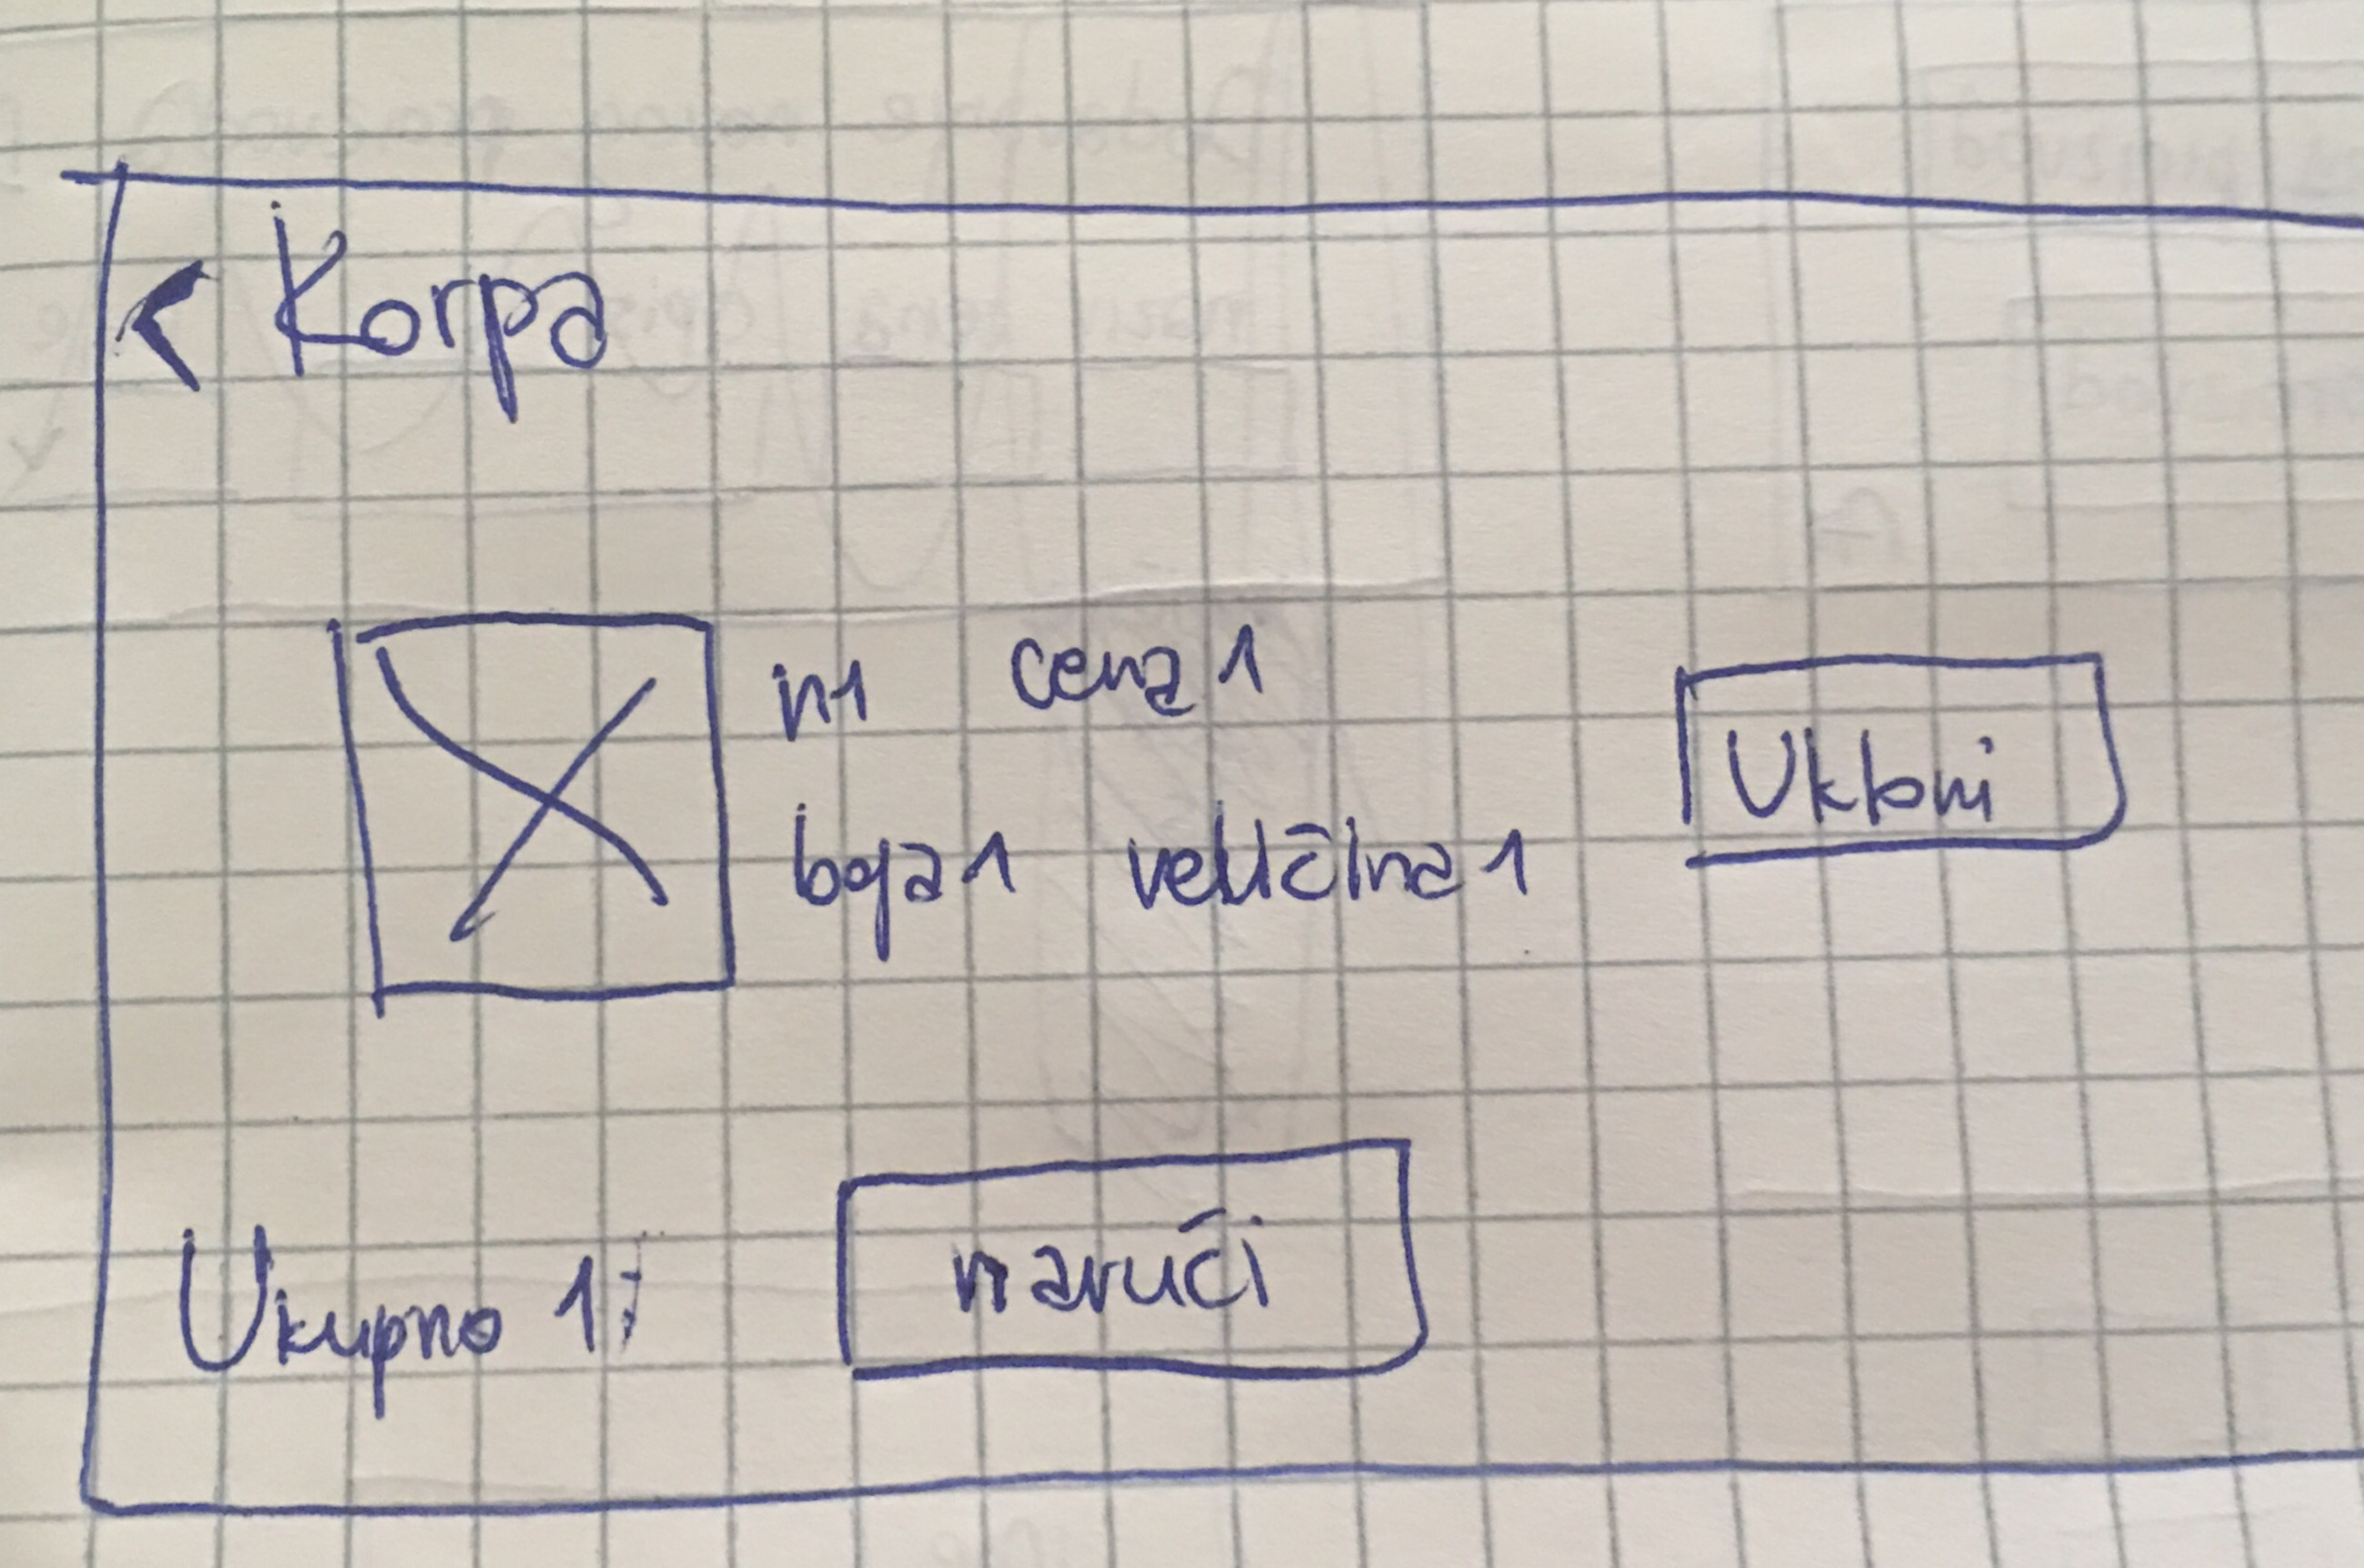 < Korpa
n1 cena1
boja1 veličina1
Ukloni
Ukupno 1:
naruči